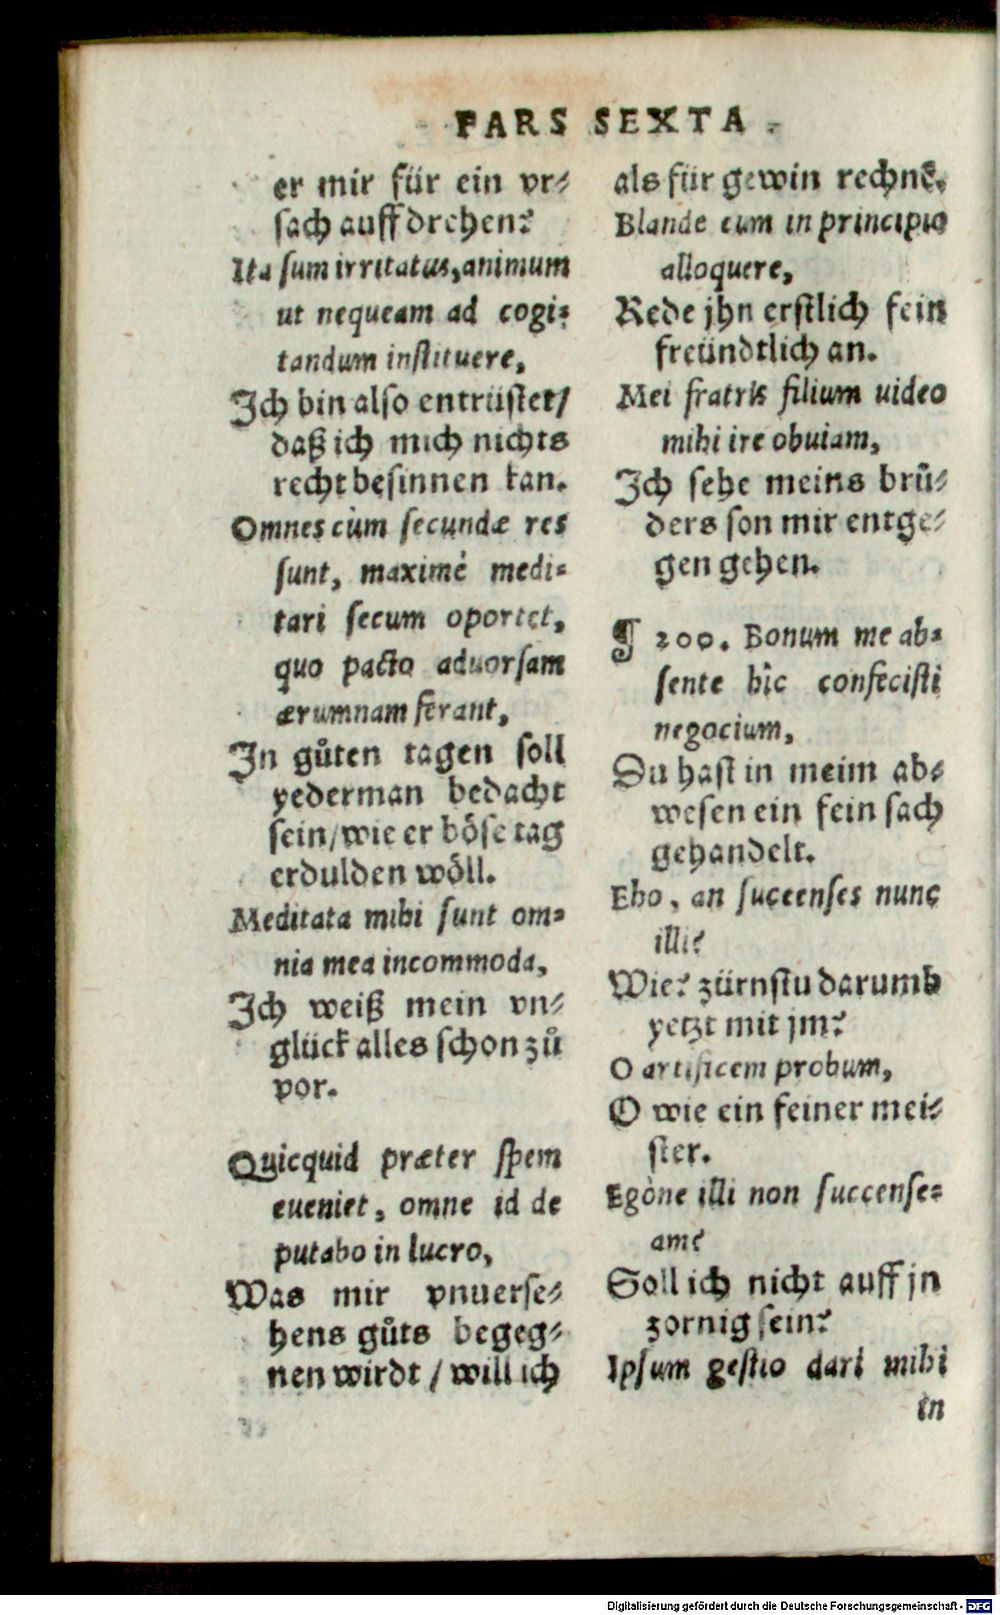 PARS SEXTA.
er mir für ein vr⸗
sach auff drehen?
Ita sum irritatus, animum
ut nequeam ad cogi⸗
tandum instituere,
Ich bin also entrüstet/
daß ich mich nichts
recht besinnen kan.
Omnes cùm secundæ res
sunt, maximè medi⸗
tari secum oportet,
quo pacto aduorsam
ærumnam ferant,
In gůten tagen soll
yederman bedacht
sein/wie er böse tag
erdulden wöll.
Meditata mihi sunt om⸗
nia mea incommoda,
Ich weiß mein vn⸗
glück alles schon zů
vor.
Quicquid præter spem
eueniet, omne id de
putabo in lucro,
Was mir vnuerse⸗
hens gůts begeg⸗
nen wirdt / will ich
als für gewin rechnẽ.
Blande eum in principio
alloquere,
Rede jhn erstlich fein
freündtlich an.
Mei fratris filium uideo
mihi ire obuiam,
Ich sehe meins brů⸗
ders son mir entge⸗
gen gehen.
¶ 200. Bonum me ab⸗
sente hîc confecisti
negocium,
Du hast in meim ab⸗
wesen ein fein sach
gehandelt.
Eho, an succenses nunc
illi?
Wie? zürnstu darumb
yetzt mit jm?
O artificem probum,
O wie ein feiner mei⸗
ster.
Egòne illi non succense⸗
am?
Soll ich nicht auff jn
zornig sein?
Ipsum gestio dari mihi
in
Digitalisierung gefördert durch die Deutsche Forschungsgemeinschaft - DFG